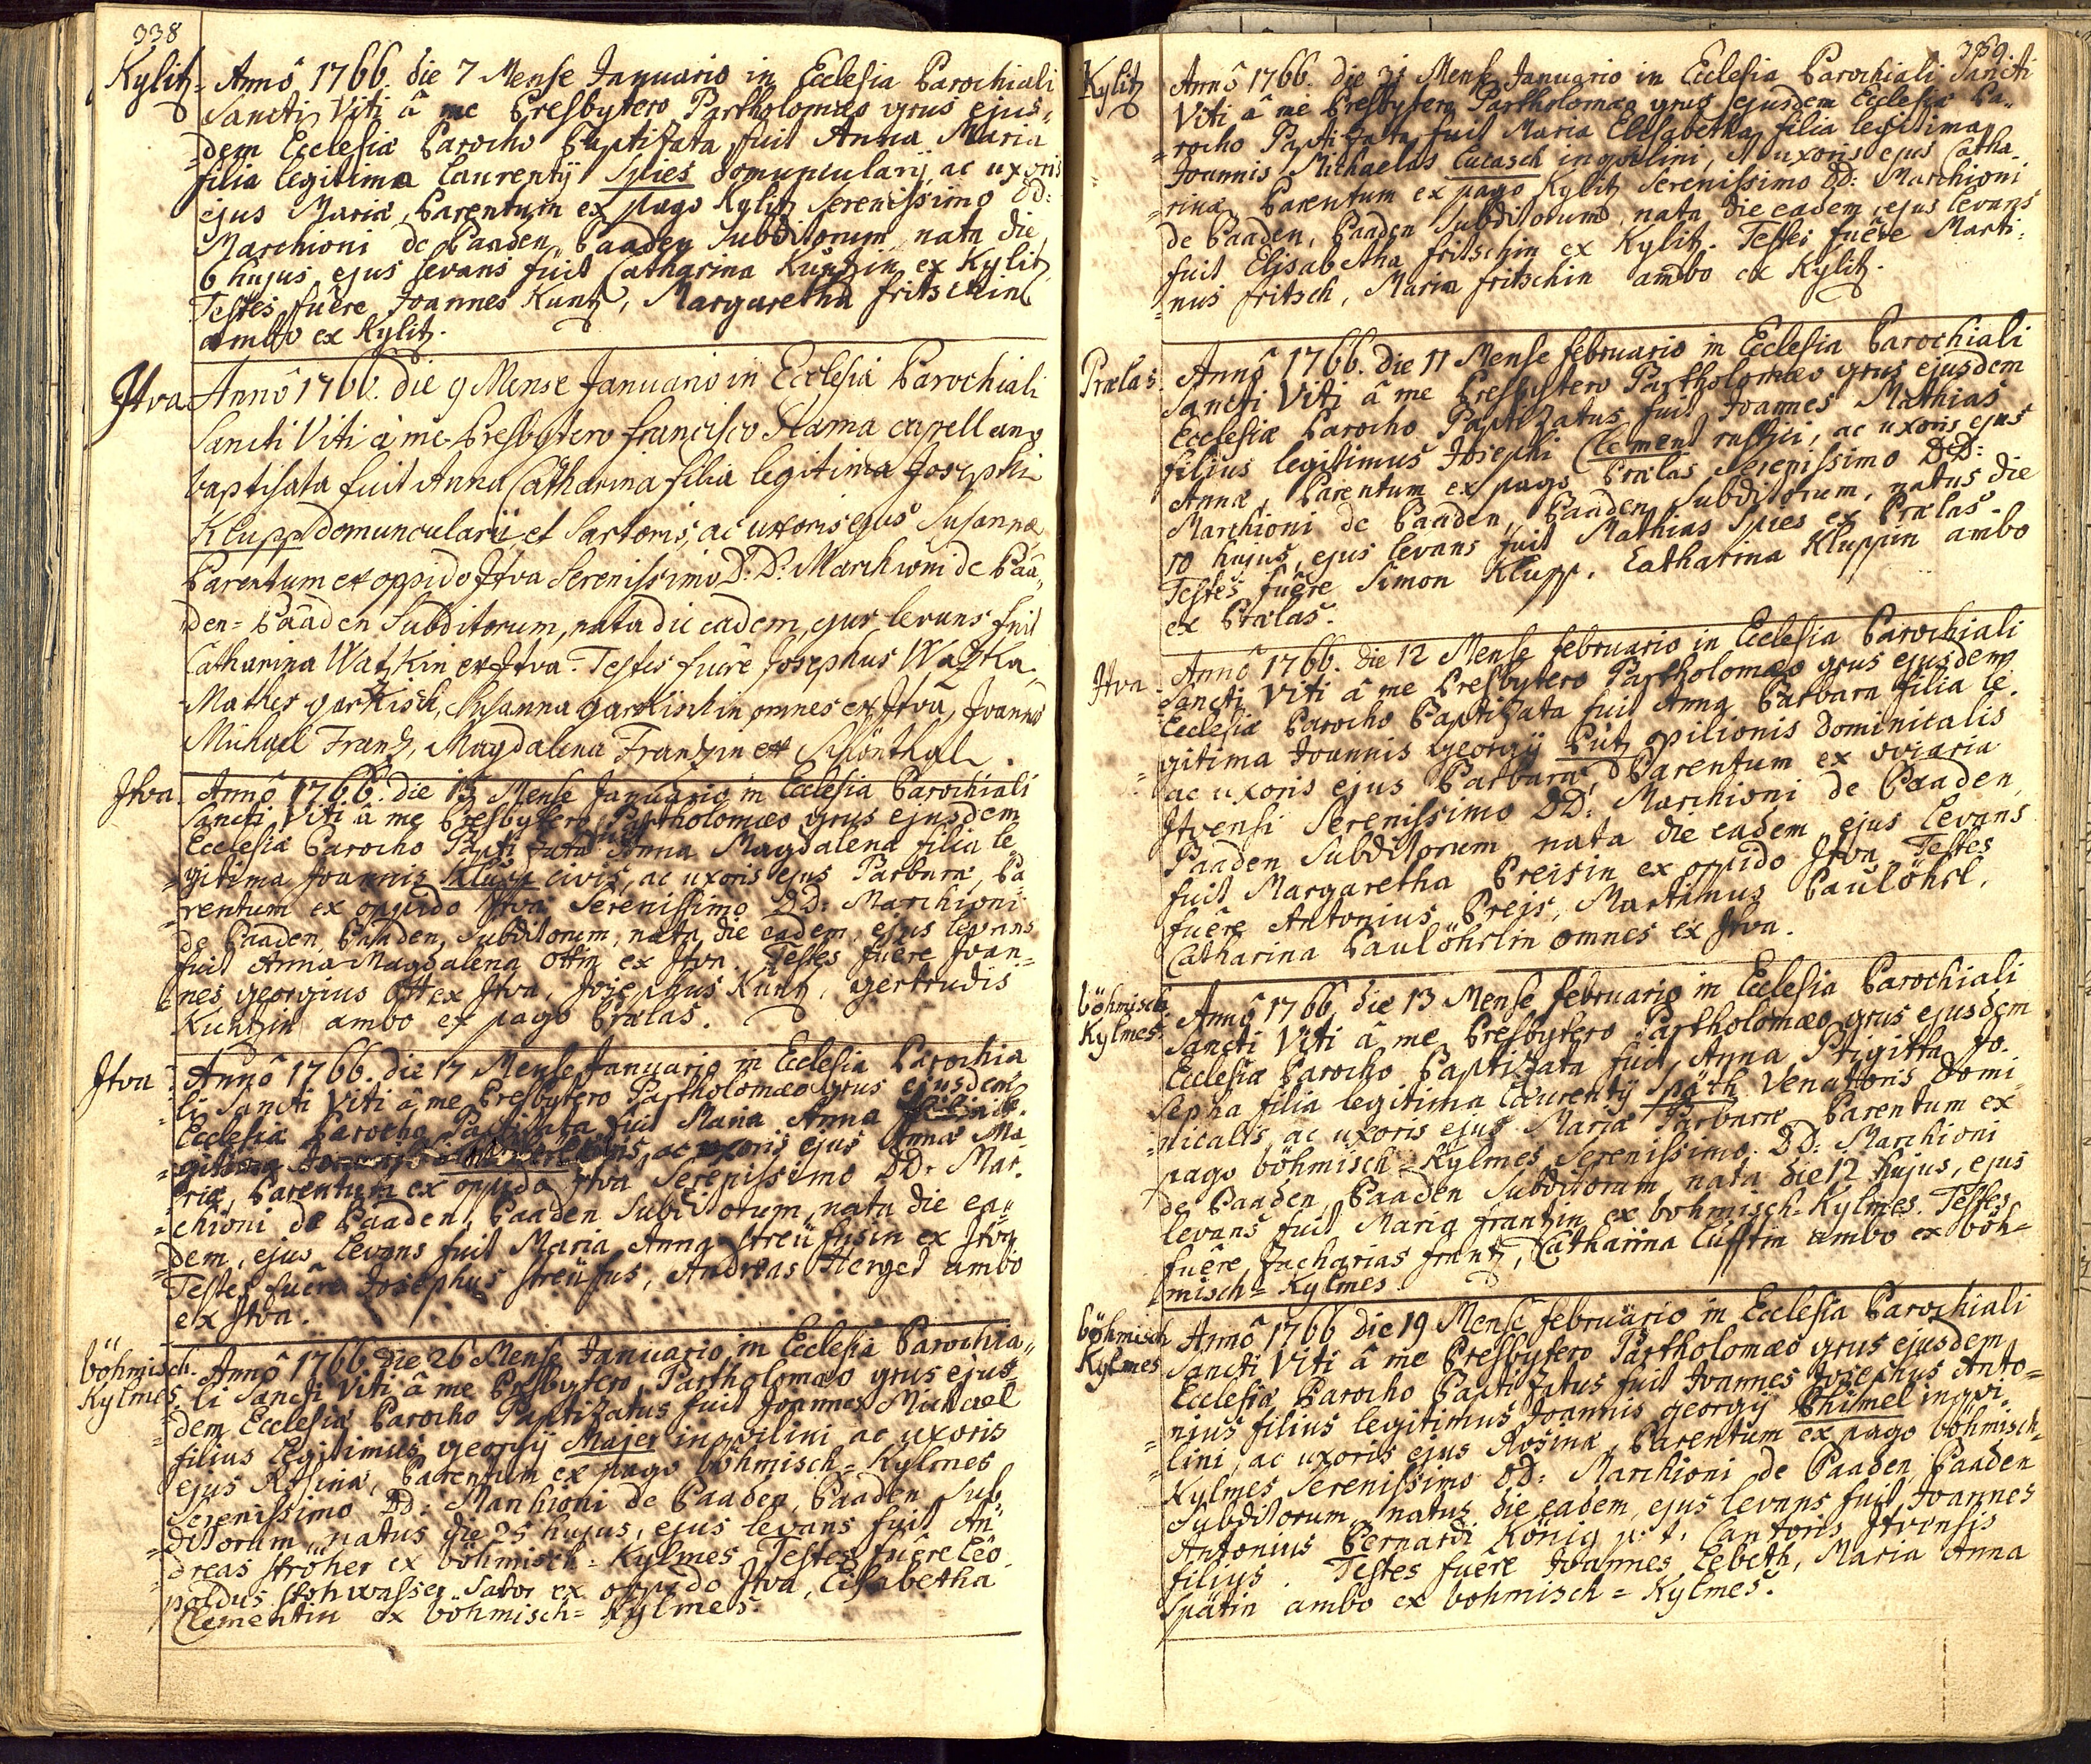 338
Kylitz. Annô 1766. die 7 Mense Januario in Ecclesia Parochiali
Sancti Viti â me Presbytero Partholomæo grus ejus-
dem Ecclesiæ Parocho Baptizata fuit Anna Maria
filia legitima Laurentÿ Spies domuncularÿ ac uxoris
ejus Mariæ, Parentum ex pago Kylitz Serenissimo DD:
Marchioni de Baaden, Baaden Subditorum nata die
6 hujus, ejus levans fuit Catharina Kuntzin ex Kylitz.
Testes fuêre Joannes Kuntz, Margaretha fritschin
ambo ex Kylitz.
Jtva Annô 1766. die 9 Mense Januario in Ecclesia Parochiali
Sancti Viti à me Presbytero Francisco Slama capellano
baptisata fuit Anna Catharina filia legitima Josephi
Klupp domuncularii et Sartoris, ac uxoris ejus Susannæ
Parentum ex oppido Jtva Serenissimo D: D: Marchioni de Baa-
den-Baaden Subditorum, nata die eadem, ejus levans fuit
Catharina Watzkin ex Jtva. Testes fuêre Josephus Watzka,
Mathes garkisch, Susanna garkischin omnes ex Jtva, Joannes
Michael Frantz, Magdalena Frantzin ex Schönthal.
Jtva. Annô 1766. die 13 Mense Januario in Ecclesia Parochiali
Sancti Viti â me Presbytero Partholomæo grus ejusdem
Ecclesiæ Parocho Baptizata fuit Anna Magdalena filia le
gitima Joannis Klupp civis, ac uxoris ejus Parbaræ, Pa
rentum ex oppido Jtva Serenissimo DD: Marchioni
de Baaden, Baaden, Subditorum, nata die eadem, ejus levans
fuit Anna Magdalena Ottin ex Jtva. Testes fuêre Joan-
nes georgius Ott ex Jtva, Josephus Kuntz, gertrudis
Kuntzin ambo ex pago Prælas.
Jtva Annô 1766. die 17 Mense Januario in Ecclesia Parochia
li Sancti Viti â me Presbytero Partholomæo grus ejusdem
Ecclesiæ Parocho Baptizata fuit Maria Anna filia le-
gitima ac uxoris ejus Annæ Ma-
riæ, Parentum ex oppido Jtva Serenissimo DD: Mar-
chioni de Baaden, Baaden Subditorum, nata die ea-
dem, ejus levans fuit Maria Anna Streüfusin ex Jtva
Testes fuêre Josephus Streüfus, Andreas Herget ambo
ex Jtva.
böhmisch Kylmes. Annô 1766 die 26 Mense Januario in Ecclesia Parochia-
li Sancti Viti â me Presbytero Partholomæo grus ejus-
dem Ecclesiæ Parocho Baptizatus fuit Joannes Michael
filius legitimus georgÿ Majer inquilini ac uxoris
ejus Rosinæ, Parentum ex pago böhmisch-Kylmes
Serenissimo DD: Marchioni de Baaden, Baaden Sub
ditorum, natus die 25 hujus, ejus levans fuit An
dreas Ströher ex böhmisch-Kylmes. Testes fuêre Leo
poldus Stohwasser Sator ex oppido Jtva, Elisabetha
Clementin ex böhmisch-Kylmes.
339.
Kylitz Annô 1766. die 31 Mense Januario in Ecclesia Parochiali Sancti
Viti â me Presbytero Partholomæo grus ejusdem Ecclesiæ Pa-
rocho Baptizata fuit Maria Elisabetha filia legitima
Joannis Michaelas Lucasch inquilini, et uxoris ejus Catha-
rinæ Parentum ex pago Kylitz Serenissimo DD: Marchioni
de Baaden, Baaden Subditorum, nata die eadem, ejus levans
fuit Elisabetha fritschin ex Kylitz. Testes fuêre Marti-
nus fritsch, Maria fritschin ambo ex Kylitz.
Prælas. Annô 1766. die 11 Mense februario in Ecclesia Parochiali
Sancti Viti â me Presbytero Partholomæo grus ejusdem
Ecclesiæ Parocho Baptizatus fuit Joannes Mathias
filius legitimus Josephi Clement rustici, ac uxoris ejus
Annæ, Parentum ex pago Prælas Serenissimo DD:
Marchioni de Baaden, Baaden Subditorum, natus die
10 hujus, ejus levans fuit Mathias Spies ex Prælas.
Testes fuêre Simon Klupp, Catharina Kluppin ambo
ex Prælas.
Jtva. Annô 1766. die 12 Mense februario in Ecclesia Parochiali
Sancti Viti â me Presbytero Partholomæo grus ejusdem
Ecclesiæ Parocho Baptizata fuit Anna Barbara filia le
gitima Joannis georgÿ Putz opilionis Dominicalis
ac uxoris ejus Barbaræ, Parentum ex oviaria
Jtvensi Serenissimo DD: Marchioni de Baaden,
Baaden Subditorum, nata die eadem, ejus levans
fuit Margaretha Preisin ex oppido Jtva. Testes
fuêre Antonius Preis, Martinus Paulöhrl,
Catharina Paulöhrlin omnes ex Jtva.
böhmisch Kylmes. Annô 1766. die 13 Mense februario in Ecclesia Parochiali
Sancti Viti â me Presbytero Partholomæo grus ejusdem
Ecclesiæ Parocho Baptizata fuit Anna Prigitta Jo-
sepha filia legitima Laurentÿ Späth Venatoris Domi
nicalis, ac uxoris ejus Mariæ Parbaræ Parentum ex
pago böhmisch-Kylmes Serenissimo DD: Marchioni
de Baaden, Baaden Subditorum, nata die 12 hujus, ejus
levans fuit Maria frantzin ex bohmisch-Kylmes. Testes
fuêre Zacharias frantz, Catharina Lufftin ambo ex böh-
misch-Kylmes.
böhmisch Kylmes Annô 1766 die 19 Mense februario in Ecclesia Parochiali
Sancti Viti â me Presbytero Partholomæo grus ejusdem
Ecclesiæ Parocho Baptizatus fuit Joannes Josephus Anto-
nius filius legitimus Joannis georgÿ Thimel inqui-
lini, ac uxoris ejus Rosinæ, Parentum ex pago böhmisch-
Kylmes Serenissimo DD: Marchioni de Baaden, Baaden
Subditorum, natus die eadem, ejus levans fuit Joannes
Antonius Bernardi König p: t: Cantoris Jtvensis
filius. Testes fuêre Joannes Lebeth, Maria Anna
Spätin ambo ex bohmisch-Kylmes.